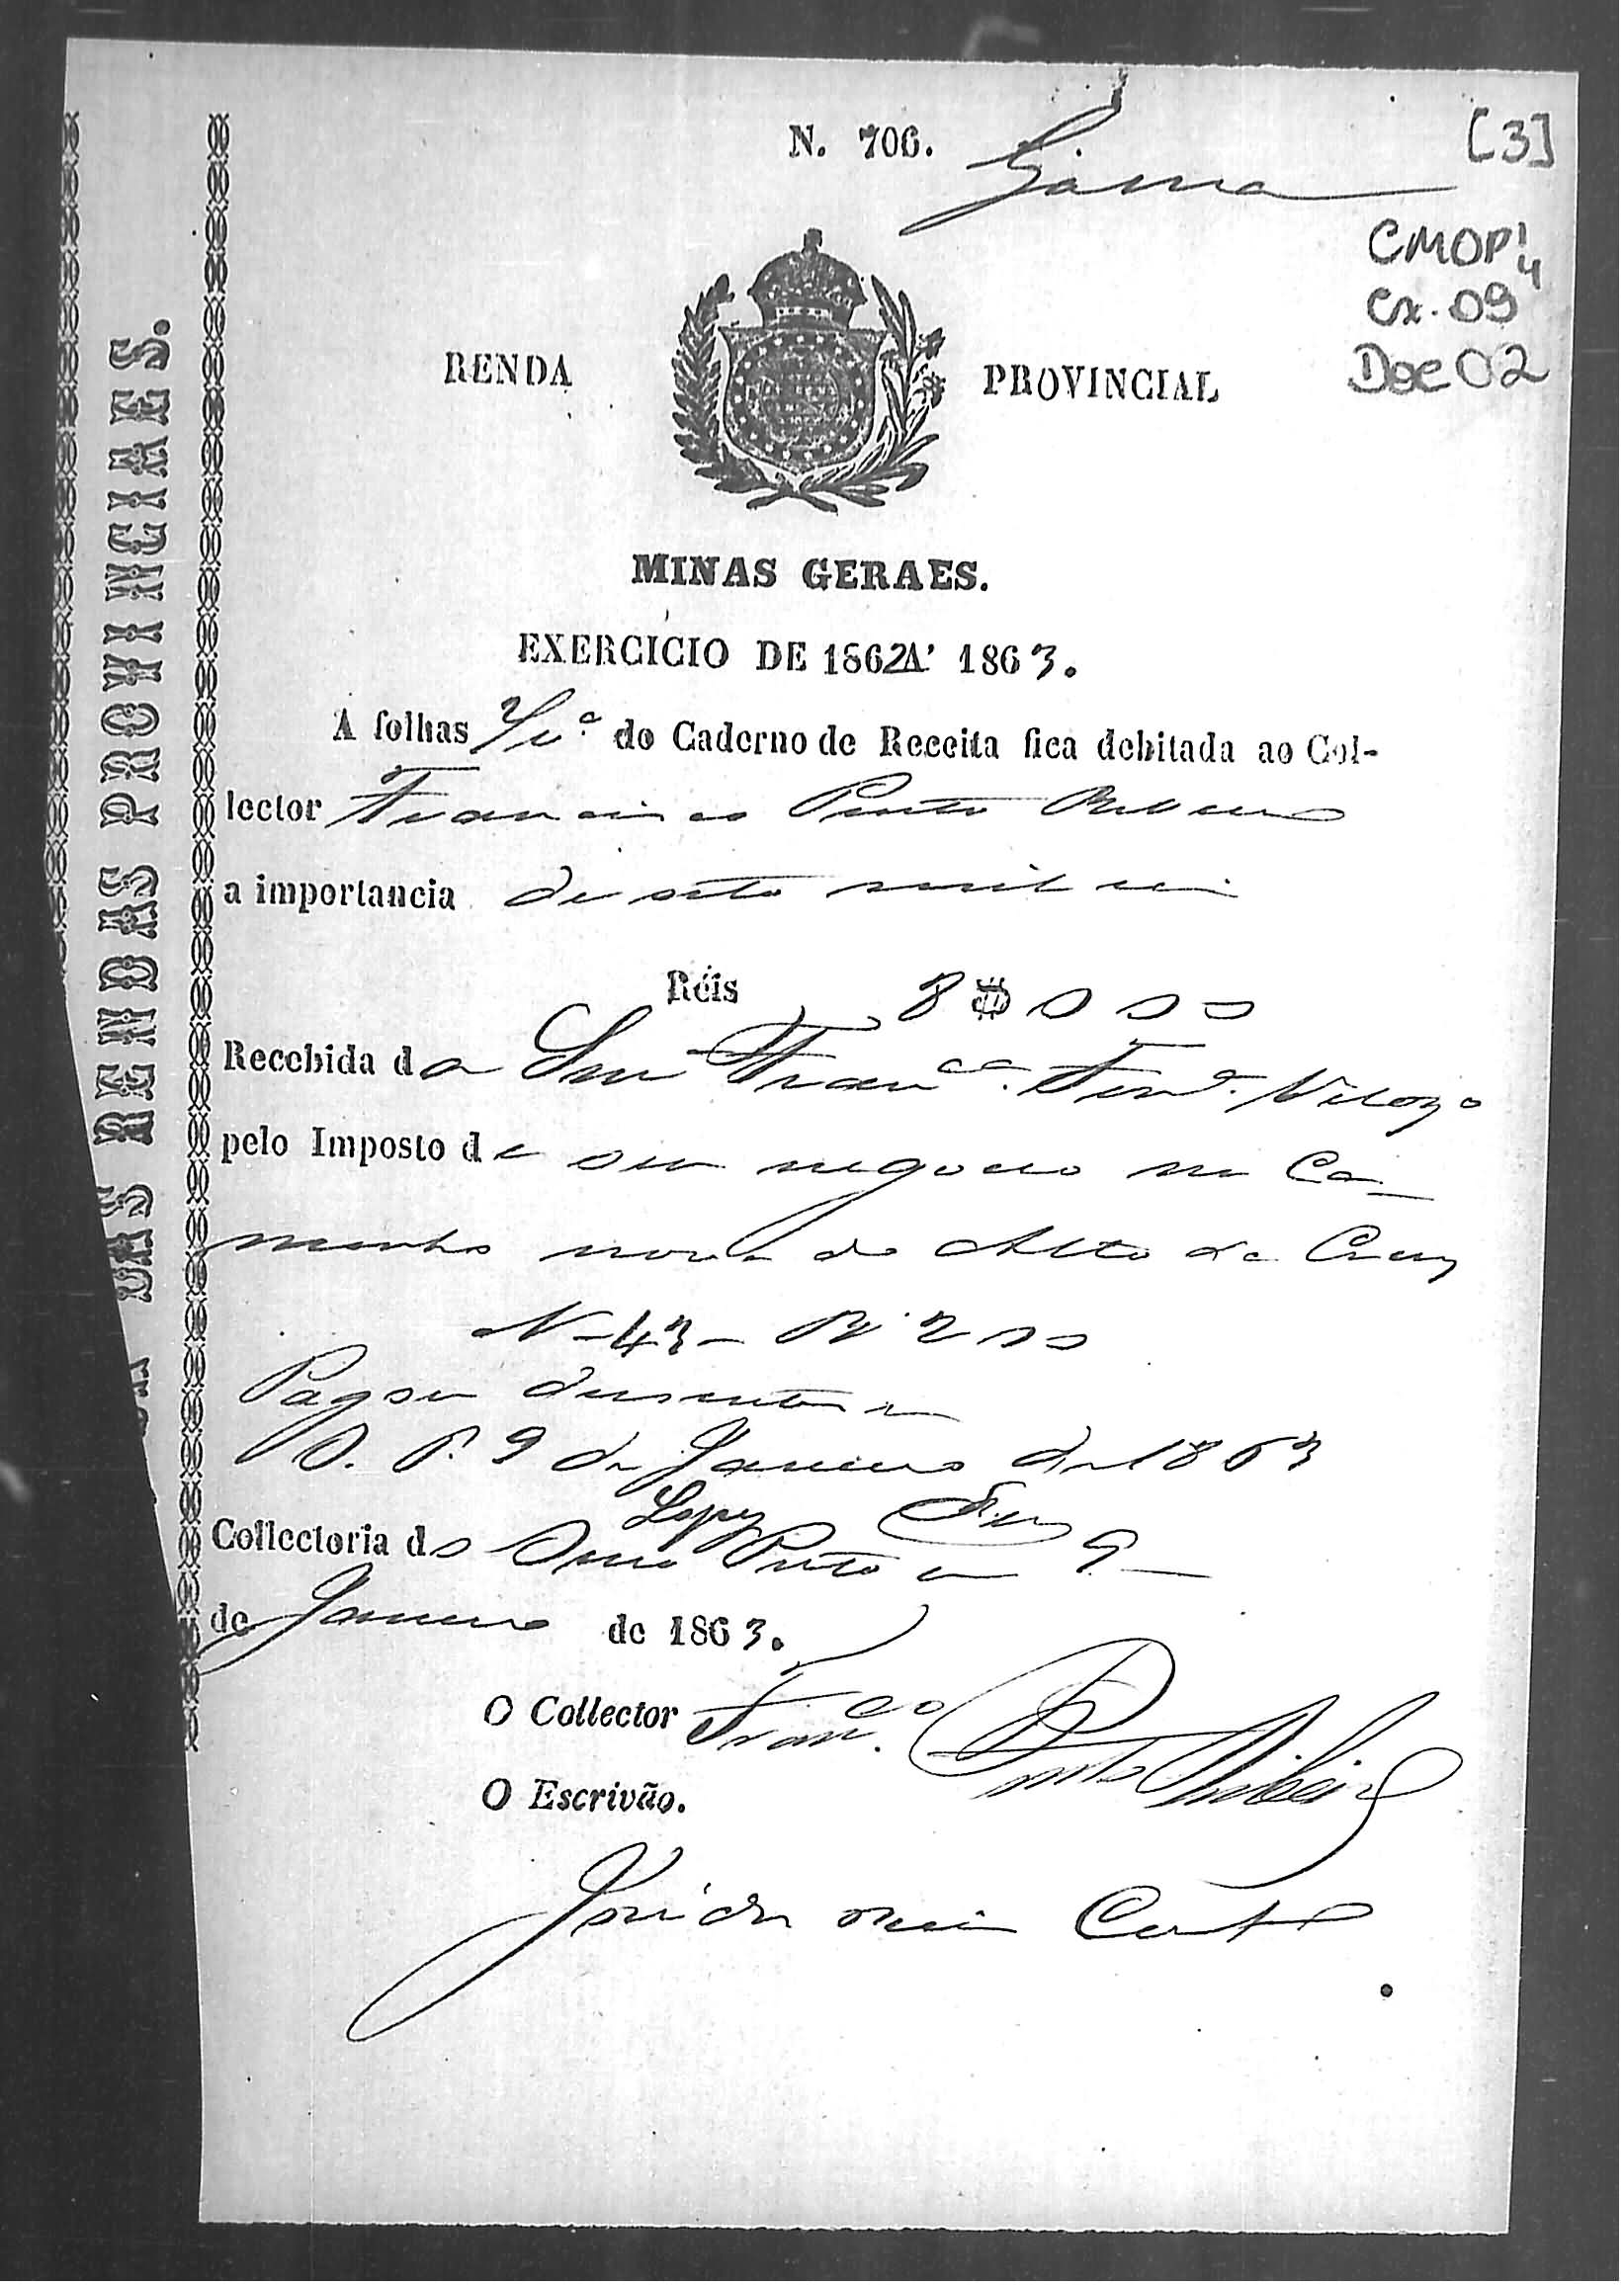 N. 706.
Gama
[3]
CMOP 1
4
Cx. 09
Doc 02
RENDA PROVINCIAL
MINAS GERAES.
EXERCICIO DE 1862 A' 1863.
A folhas do Caderno de Receita fica debitada ao Col-
lector Francisco Pinto Ribeiro
a importancia de oito mil reis
Réis 8$000
Recebida da Snrª Francca. Ferrª. Veloza
pelo Imposto de seu negocio no Ca-
minho novo do Alto da Cruz
N-43- Rs 200
Pagou duzentos rs
O. P. 9 de Janeiro de 1863
Lopes
Collectoria do Ouro Preto em 9
de Janeiro de 1863.
O Collector Franco. Pinto Ribeiro
O Escrivão.
DAS RENDAS PROVINCIAES.